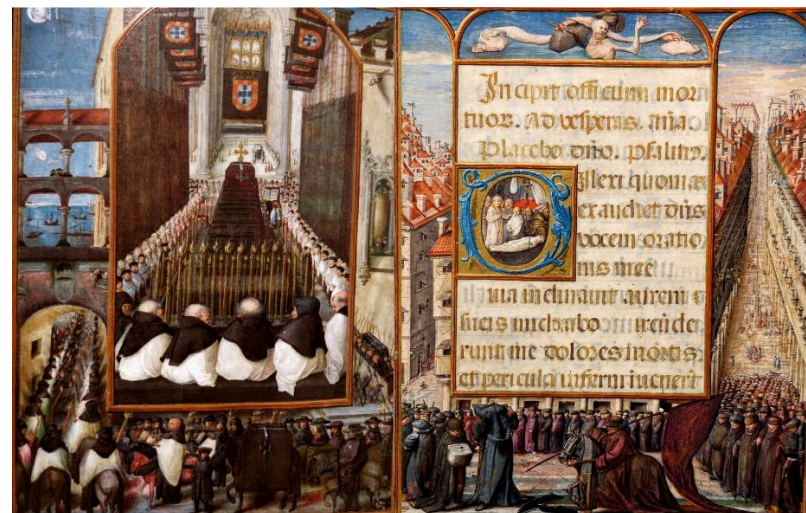 Incipit officium mor
tuor. Ad vesperas. aña
Placebo dño. psalmꝰ.
Dilexi quoniā
exaudiet dñs
vocem oratio
nis mee
Quia inclinavit aurem
suam michi et in diebus
meis invocabo
runt me dolores mortis
et pericula inferni invenert